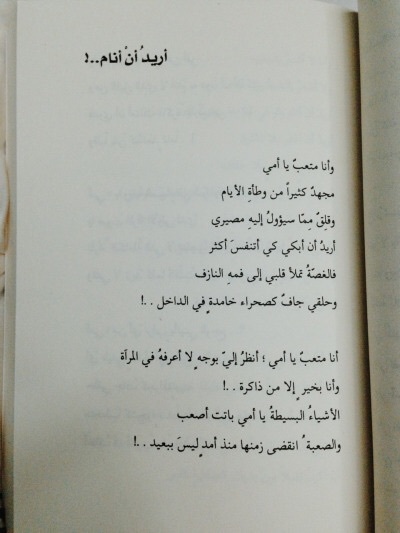 أريدُ أنْ أنام..!
وأنا متعبٌ يا أمي
مجهدٌ كثيراً من وطأةِ الأيام
وقلِقٌ مِمّا سيؤولُ إليهِ مصيري
أريدُ أن أبكي كي أتنفسَ أكثر
فالغصّةُ تملأ قلبي إلى فمهِ النازف
وحلقي جافٌ كصحراء خامدةٍ في الداخل . .!
أنا متعبٌ يا أمي ؛ أنظرُ إليّ بوجهٍ لا أعرفهُ في المرآة
وأنا بخيرٍ إلا من ذاكرة . .!
الأشياءُ البسيطةُ يا أمي باتت أصعب
والصعبةُ انقضى زمنها منذ أمدٍ ليسَ ببعيد . .!